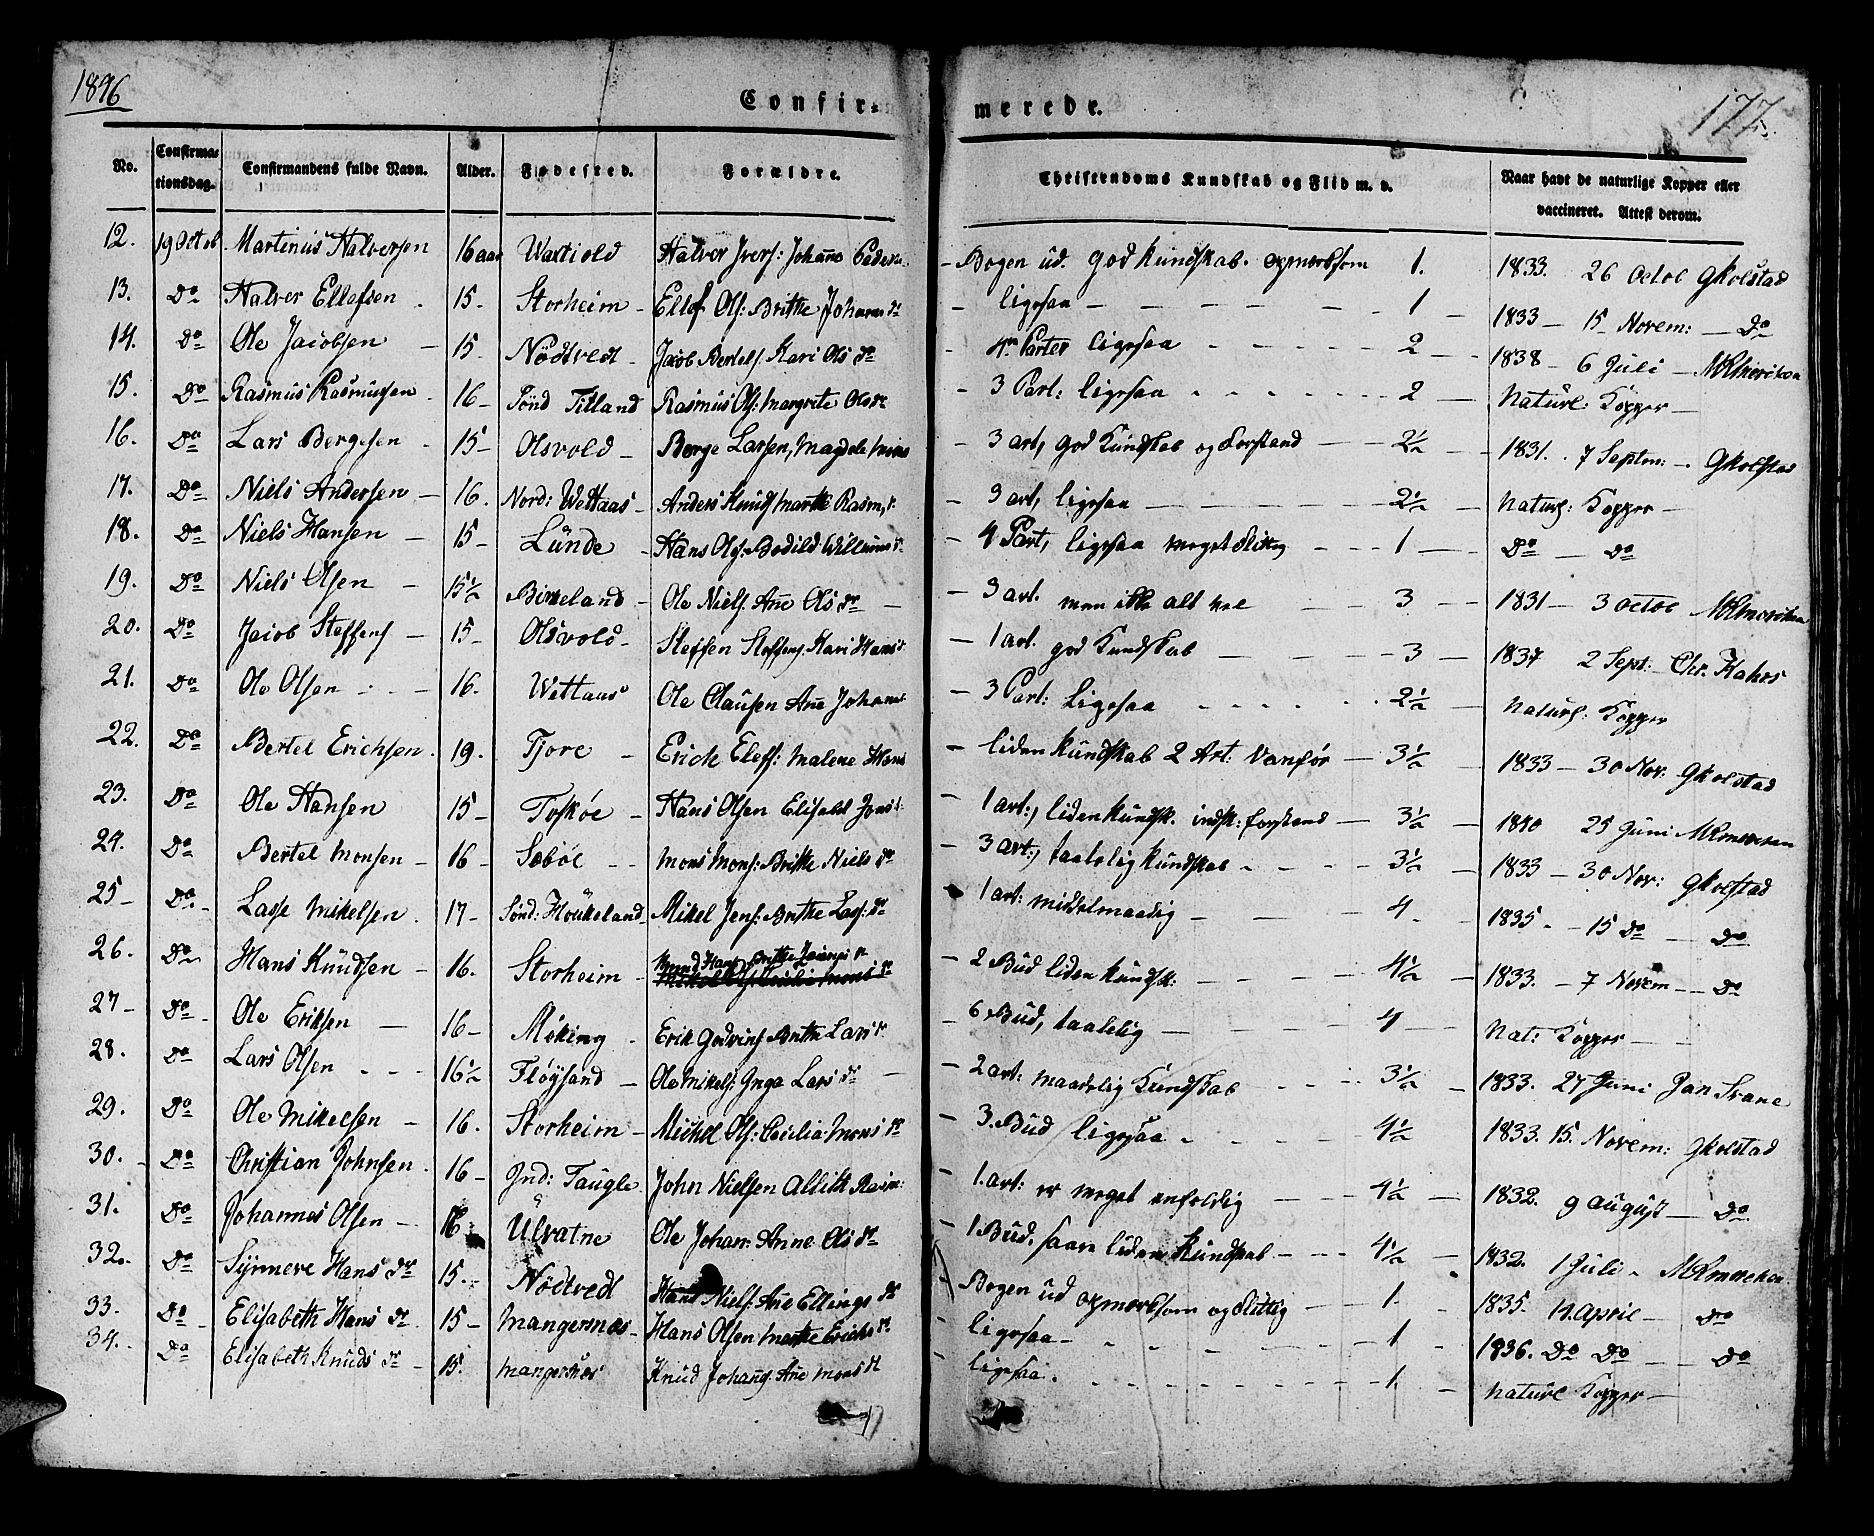 1846
Confir-
merede.
177.
No. Confirmationsdag. Confirmandens fulde Navn. Alder. Fødested. Forældre. Christendoms Kundskab og Flid m. v. Naar havt de naturlige Kopper eller vaccineret. Attest derom.
12. 19 Octob Martinus Halversen 16 aar Halver Ivers: Johanne Peders - Bogen ud. god Kundskab. opmerksom 1. 1833. 26 Octob G Kolstad
13. Do Halver Ellefsen 15 - Storheim - Ellef Ols: Brithe Johans dr - ligesaa - 1 - 1833 - 15 Novem: - Do
14. Do Ole Jacobsen - 15 - Nödtvedt - Jacob Bertels Kari Ols dr - 4re Parter ligesaa - 2 - 1838 - 6 Juli -
15. Do Rasmus Rasmusen 16 - Sönd Titland Rasmus Ols: Margrete Ols dr - 3 Part: ligesaa - 2 - Naturl: Kopper -
16. Do Lars Bergesen - 15 - Olsvold - Berge Larsen, Magdele Mons - 3 art, god Kundskab og Forstand - 2½ - 1831. 7 Septm: - G Kolstad
17. Do Niels Andersen - 16. Nord: Wettaas - Anders Knuds Marthe Rasm, - 3 art, ligesaa - 2½ - Naturl: Kopper -
18. Do Niels Hansen - 15 - Lunde - Hans Ols: Bodild Willums dr - 4 Part, ligesaa meget flittig - 1 - Do - Do
19. Do Niels Olsen - 15½ Birkeland - Ole Niels: Ane Ols dr - 3 art. men ikke alt vel - 3 - 1831 - 3 Octob
20. Do Jacob Steffens - 15 - Olsvold - Steffen Steffens: Kari Hans dr - 1 art. god Kundskab - 3 - 1837 2 Sept: Chr. Kahrs
21. Do Ole Olsen - 16. Wettaas Ole Clausen Ane Johans - 3 Part: Ligesaa - 2½ - Naturl: Kopper
22. Do Bertel Erichsen. 19. Tjore - Erick Elefs: Malene Hans - liden Kundskab 2 Art: Vanför - 3½ - 1833 - 30 Nov: G Kolstad
23. Do Ole Hansen 15 - Toskøe - Hans Olsen Elisabet Jons - 1 art:, liden Kundsk. indsk: forstand - 3½ - 1840 25 Juni
24. Do Bertel Monsen - 16 - Sæböe - Mons Mons: Brithe Niels dr - 3 art:, taalelig Kundskab - 3½ - 1833 - 30 Nov: G Kolstad
25 - Do - Lasse Mikelsen. 17 - Sönd: Houkeland Mikel Jens: Brithe Lass: dr - 1 art: middelmaadig - 4. 1835. - 15 Do - Do
26. Do Hans Knudsen - 16. Storheim - Knud Hans: Brithe dr - 2 Bud liden Kundsk: - 4½ - 1833. - 7 Novem - Do
27 - Do - Ole Eriksen - 16 - Möking - Erik Brithe Lars dr - 6 Bud, taalelig - 4 - Nat: Kopper -
28. Do Lars Olsen - 16½ Flöysand - Ole Mikels: Inga Lars dr - 2 art: maadelig Kundskab - 3½ - 1833. 27 Juni Jan Svane
29. Do Ole Mikelsen - 16. Storheim - Michel Ols: Cecilia Mons dr - 3. Bud ligesaa - 4½ - 1833. 15. Novem: G Kolstad
30. Do Christian Johnsen. 16 - Ind: Taugle John Nielsen Rasm: - 1. art: er meget enfoldig - 4½ - 1832. 9 August - Do
31. Do Johannes Olsen - 16 Ulvatne Ole Johan: Anne Ols dr - 1. Bud, saare liden Kundskab - 4½ - 1832. 1 Juli
32. Do Synneve Hans dr 15. Nödtvedt Hans Niels: Ane Ellings dr - Bogen ud opmerksom og flittig - 1. 1835. 14 April - Do
33. Do Elisabeth Hans dr 15 - Mangersnes - Hans Olsen Marthe Erichs dr - ligesaa - 1 - 1836. Do Do - Do
34. Do Elisabeth Knuds dr - 15. Mangersnes Knud Johans: Ane Mons dr - ligesaa. - 1. - Naturl Kopper -